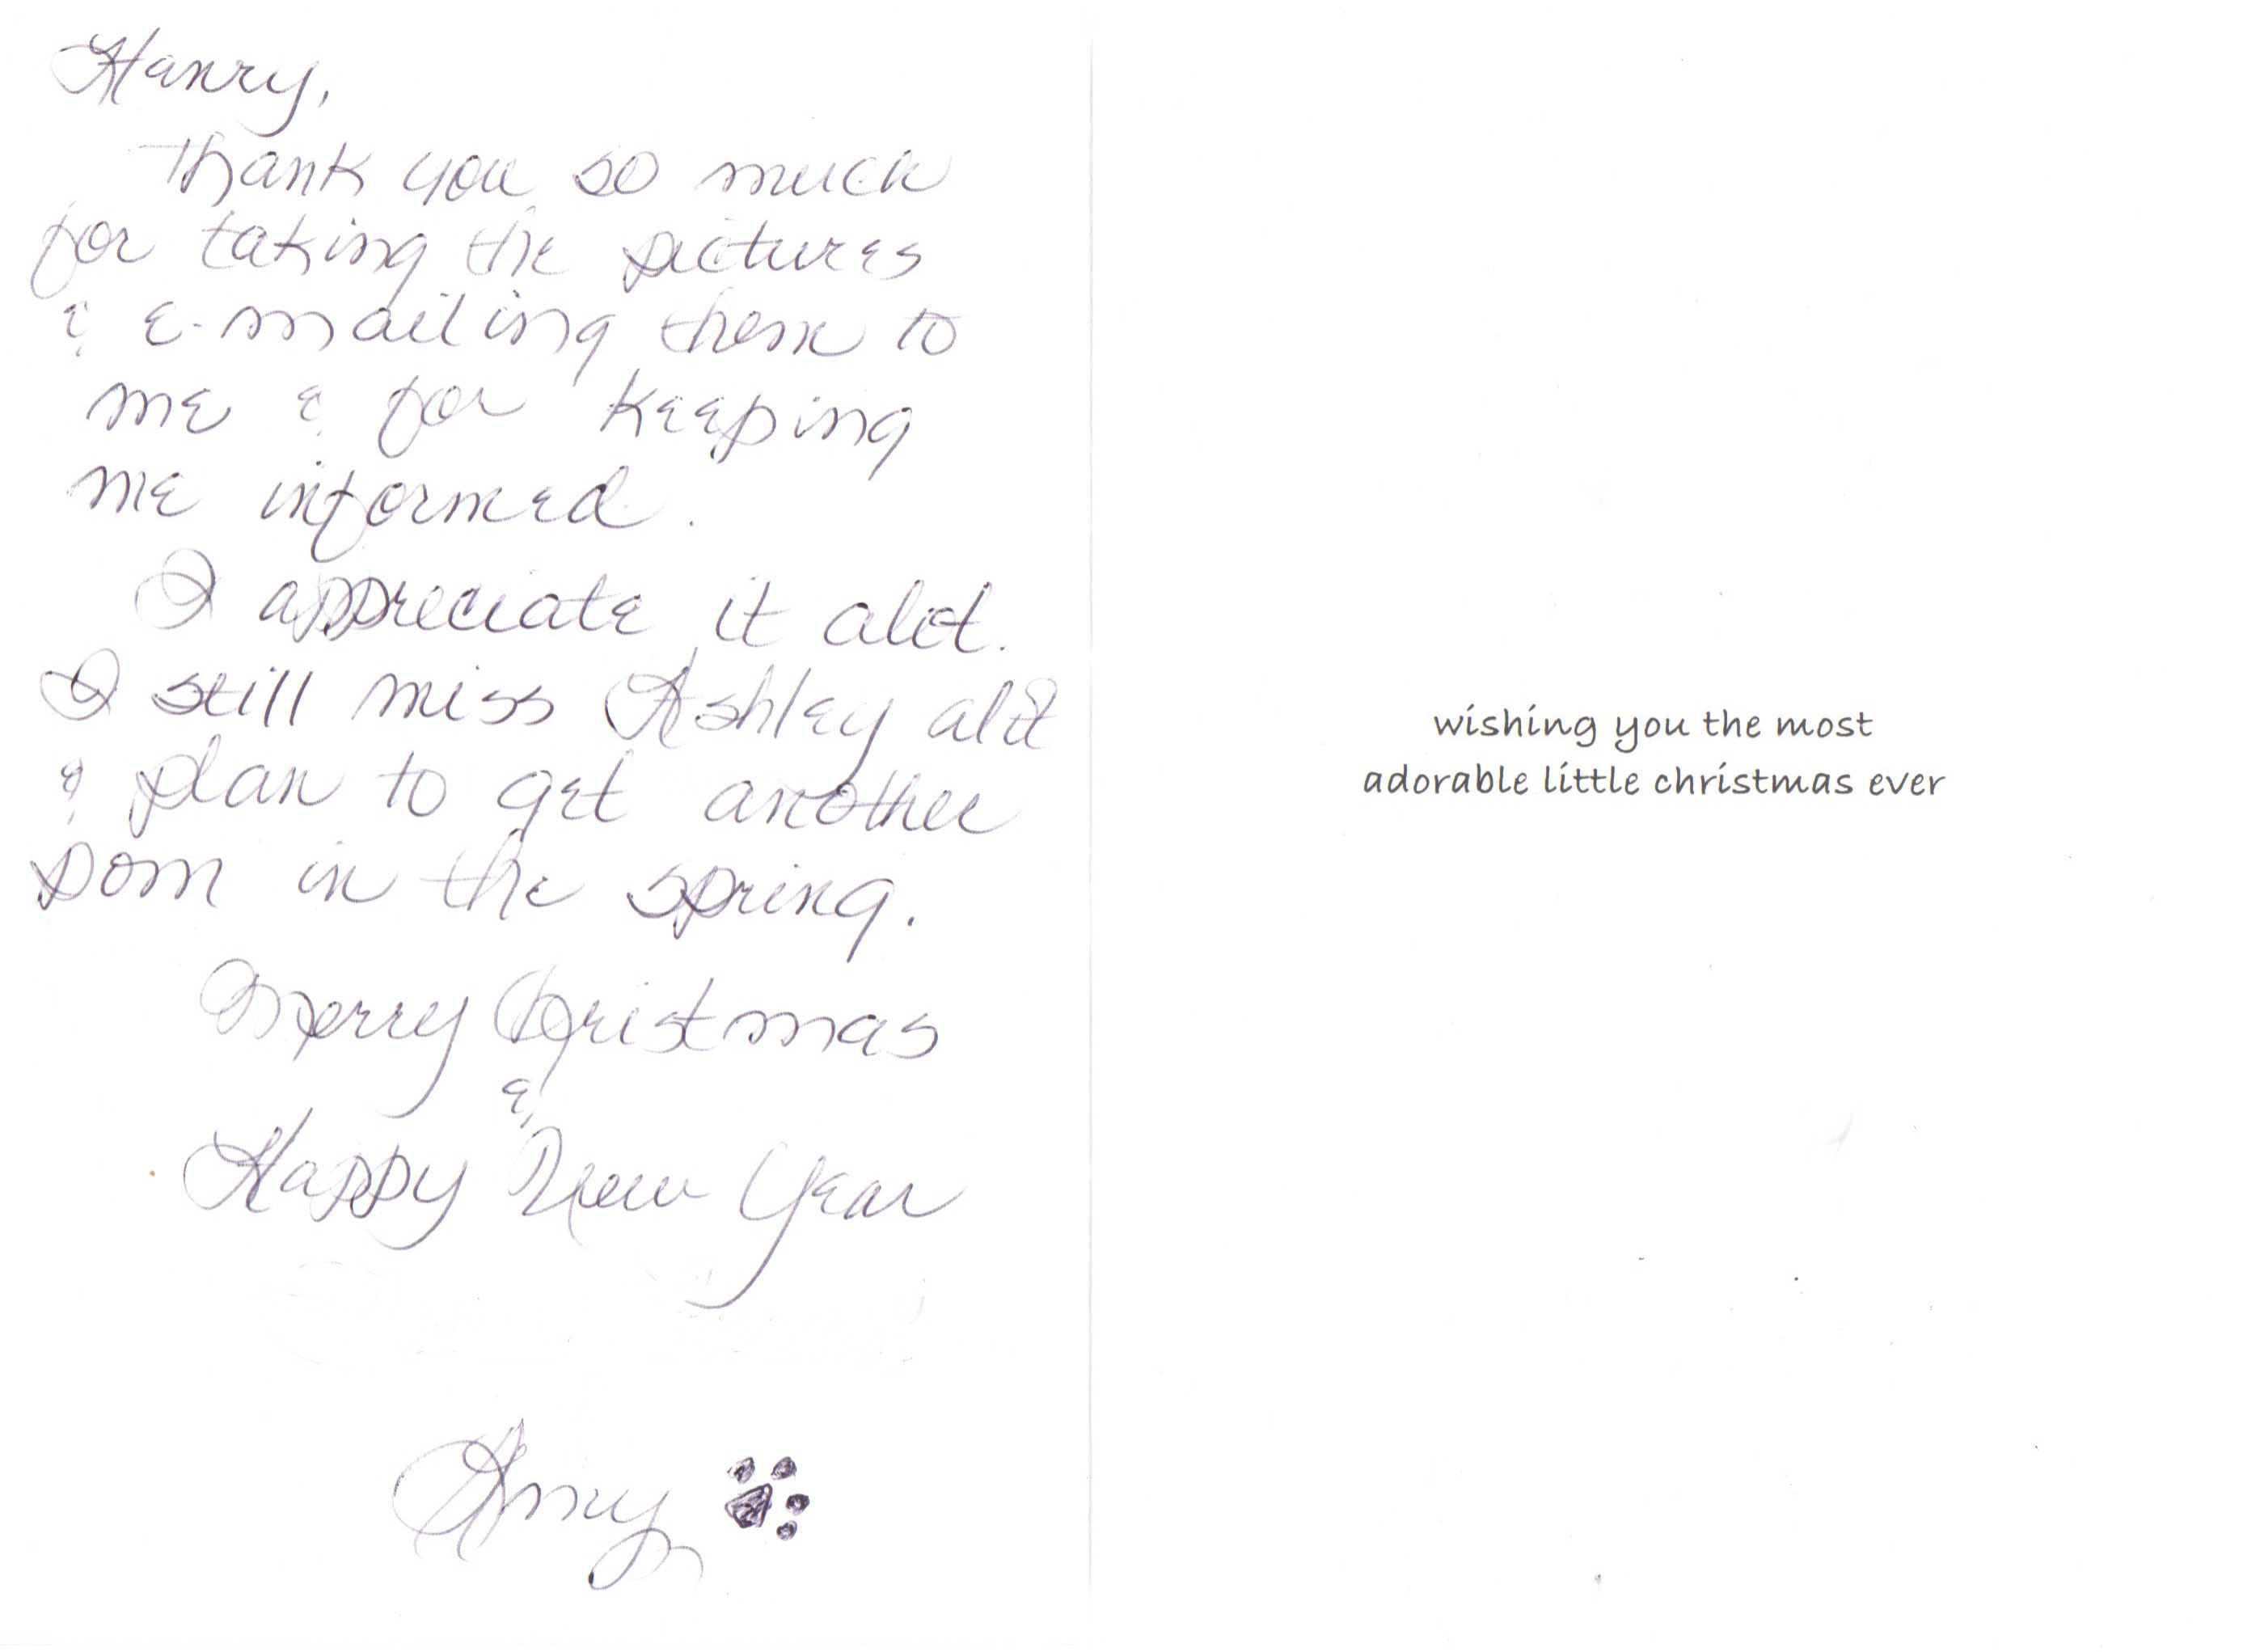 Henry,
Thank you so much
for taking the pictures
& e-mailing them to
me & for keeping
me informed.
I appreciate it alot.
I still miss Ashley alot
& plan to get another
pom in the spring.
Merry Christmas
&
Happy New Year
Amy
wishing you the most
adorable little christmas ever